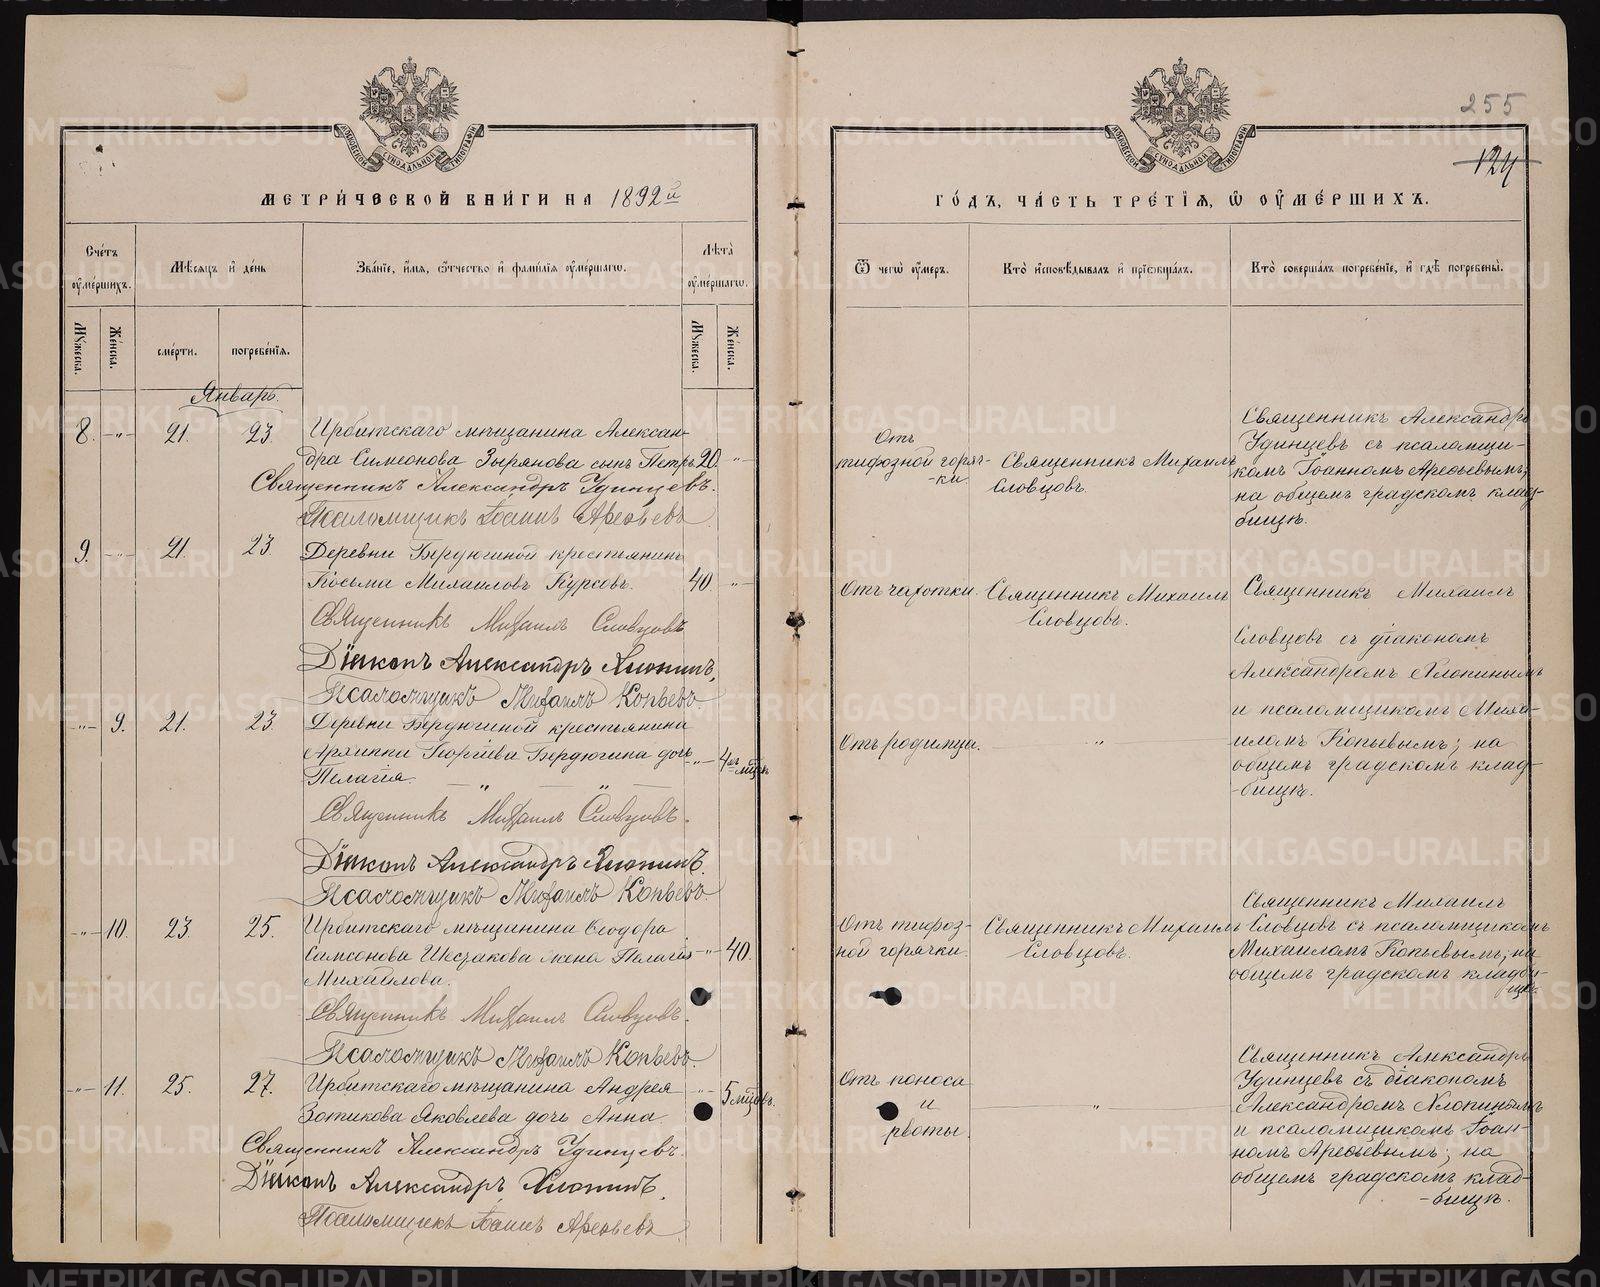 255
124
МЕТРИ́ЧЕСКОЙ КНИ́ГИ НА 1892й
ГО́ДЪ, ЧА́СТЬ ТРЕ́ТІЯ, Ѡ ОУ҆МЕ́РШИХЪ.
Сче́тъ оу҆ме́ршихъ.
Мѣ́сяцъ и҆ де́нь
Зва́ніе, и҆́мя, ѻ҆́тчество и҆ фами́лія оу҆ме́ршагѡ.
Лѣ́та оу҆ме́ршагѡ.
Ѿ чегѡ̀ оу҆́меръ.
Кто̀ и҆сповѣ́дывалъ и҆ прїѡбща́лъ.
Кто̀ соверша́лъ погребе́ніе, и҆ гдѣ̀ погребены̀.
Мꙋ́жеска.
Же́нска.
сме́рти.
погребе́нія.
Мꙋ́жеска.
Же́нска.
Январь.
8. -"- 21. 23. Ирбитскаго мѣщанина Алексан-
дра Симеонова Зырянова сынъ Петръ 20. "-
Священникъ Александръ Удинцевъ.
Псаломщикъ Іоаннъ Арефьевъ
Отъ
тифозной горяч-
-ки.
Священникъ Михаилъ
Словцовъ.
Священникъ Александръ
Удинцевъ съ псаломщи-
комъ Іоанномъ Арефьевымъ;
на общемъ градскомъ клад-
бищѣ.
9. -"- 21. 23. Деревни Бердюгиной крестьянинъ
Косьма Михаиловъ Курсовъ. 40. "-
Священникъ Михаилъ Словцовъ
Діаконъ Александръ Хлопинъ,
Псаломщикъ Михаилъ Копьевъ.
Отъ чахотки.
Священникъ Михаилъ
Словцовъ.
Священникъ Михаилъ
Словцовъ съ діакономъ
Александромъ Хлопинымъ
и псаломщикомъ Миха-
иломъ Копьевымъ; на
общемъ градскомъ клад-
-бищѣ.
-"- 9. 21. 23. Деревни Бердюгиной крестьянина
Архиппа Георгіева Бердюгина дочь "- 4хъ мѣсяц
Пелагія.
Священникъ Михаилъ Словцовъ.
Діаконъ Александръ Хлопинъ.
Псаломщикъ Михаилъ Копьевъ.
Отъ родимца.
"
-"- 10. 23. 25. Ирбитскаго мѣщанина Ѳеодора
Симеонова Шестакова жена Пелагія -"- 40.
Михайлова.
Священникъ Михаилъ Словцовъ.
Псаломщикъ Михаилъ Копьевъ.
Отъ тифоз-
ной горячки.
Священникъ Михаилъ
Словцовъ.
Священникъ Михаилъ
Словцовъ съ псаломщикомъ
Михаиломъ Копьевымъ; на
общемъ градскомъ кладби-
щѣ.
-"- 11. 25. 27. Ирбитскаго мѣщанина Андрея "- 5 мѣсяцовъ.
Зотикова Яковлева дочь Анна.
Священникъ Александръ Удинцевъ.
Діаконъ Александръ Хлопинъ.
Псаломщикъ Іоаннъ Арефьевъ
Отъ поноса
и
рвоты.
"
Священникъ Александръ
Удинцевъ съ діакономъ
Александромъ Хлопинымъ
и псаломщикомъ Іоан-
номъ Арефьевымъ; на
общемъ градскомъ клад-
-бищѣ.
METRIKI.GASO-URAL.RU